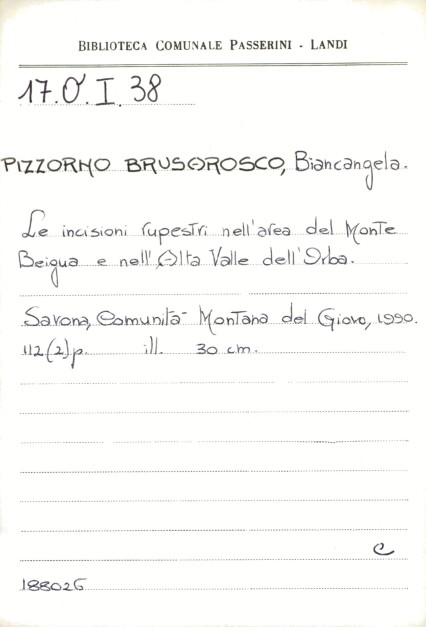 BIBLIOTECA COMUNALE PASSERINI - LANDI
17.O'.I.38
PIZZORNO BRUSAROSCO, Biancangela.
Le incisioni rupestri nell'area del Monte
Beigua e nell'Alta Valle dell'Orba.
Savona, Comunità Montana del Giovo, 1990.
112(2)p. ill. 30 cm.
C
188026